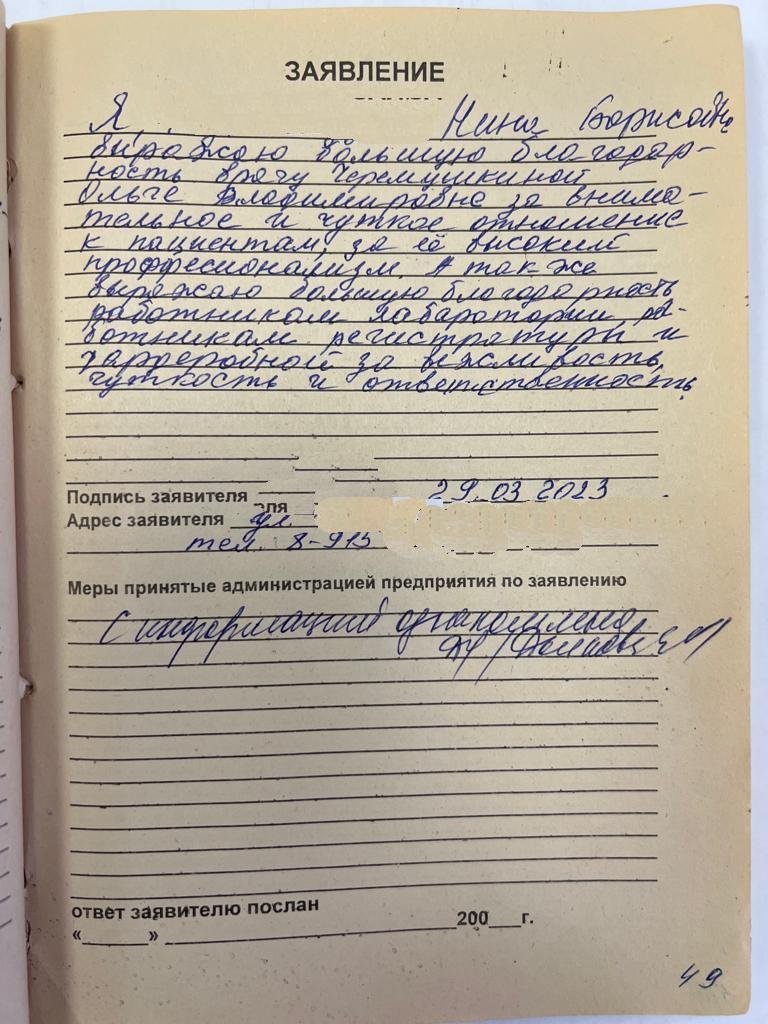 ЗАЯВЛЕНИЕ
Я Нина Борисовна
выражаю большую благодар-
ность врачу Черемушкиной
Ольге Владимировне за внима-
тельное и чуткое отношение
к пациентам, за её высокий
профессионализм. А также
выражаю большую благодарность
работникам лабаратории ра-
ботникам регистратуры и
гардеробной за вежливость,
чуткость и ответственность.
Подпись заявителя 29.03 2023
Адрес заявителя ул.
тел. 8-915
Меры принятые администрацией предприятия по заявлению
С информацией ознакомлена
ответ заявителю послан
«______» ______ 200___г.
49